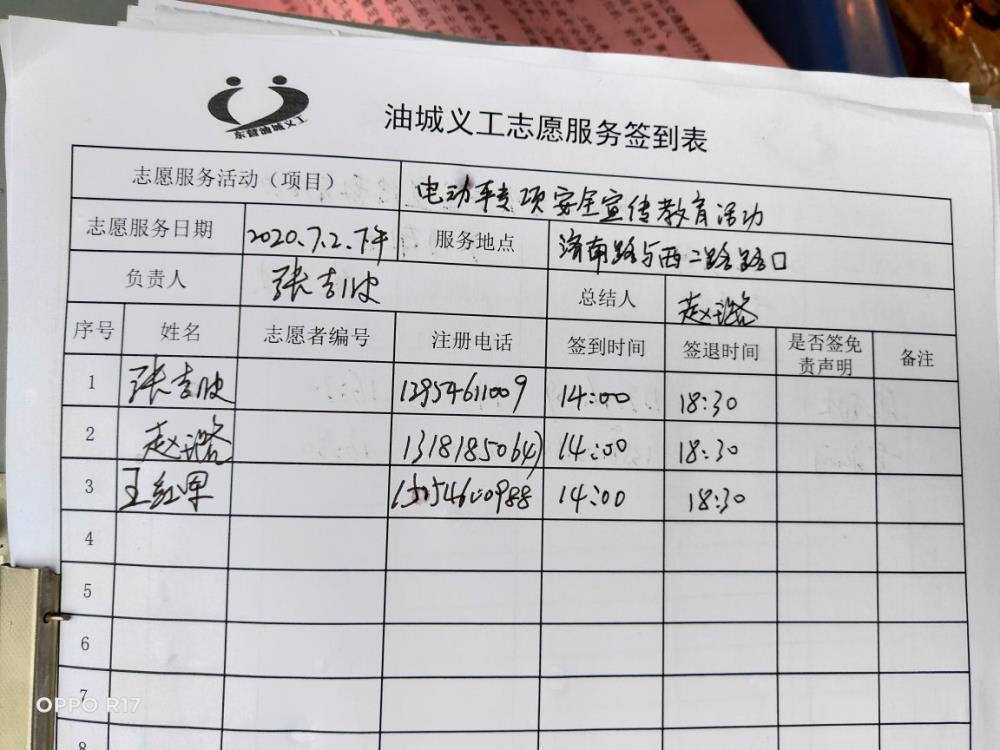 东营油城义工
油城义工志愿服务签到表
志愿服务活动（项目） 电动车专项安全宣传教育活动
志愿服务日期 2020.7.2.下午 服务地点 济南路与西二路路口
负责人 张吉波 总结人 赵璐
序号 姓名 志愿者编号 注册电话 签到时间 签退时间 是否签免责声明 备注
1 张吉波 13954611009 14:00 18:30
2 赵璐 14:00 18:30
3 王红军 14:00 18:30
4
5
6
7
8
OPPO R17